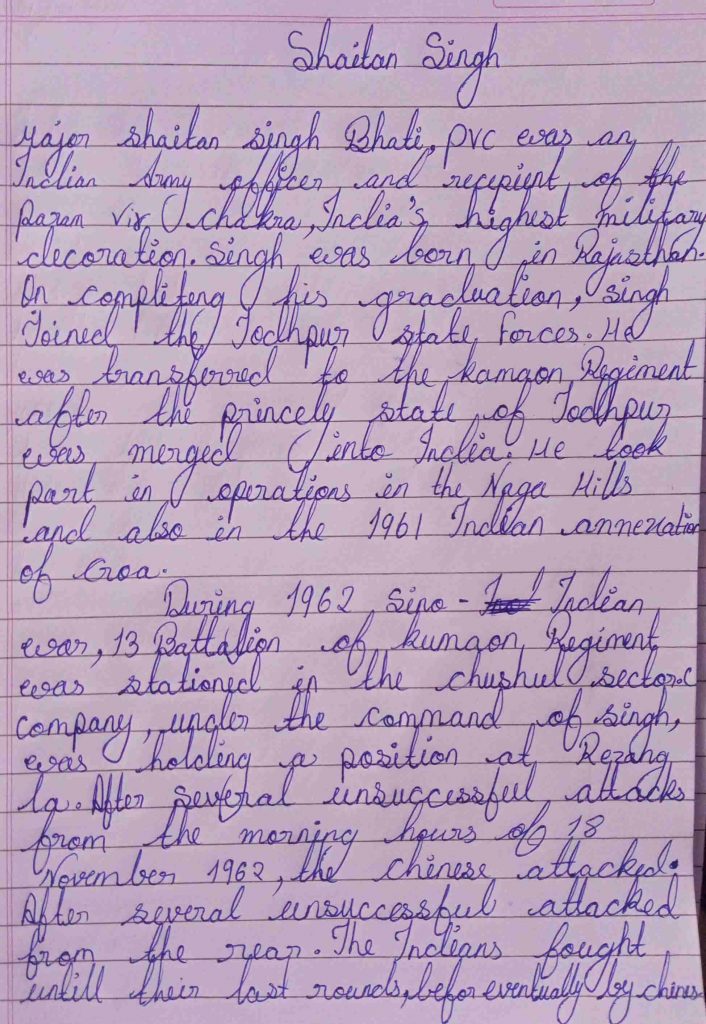 Shaitan Singh
Major Shaitan Singh Bhati, PVC was an
Indian Army officer and recepient of the
Paran Vir Chakra, India's highest military
decoration. Singh was born in Rajasthan.
On compliteng his graduation, Singh
Joined the Jodhpur state forces. He
was transferred to the kamaon Regiment
after the princely state of Jodhpur
was merged into India. He took
part in operations in the Naga Hills
and also in the 1961 Indian annexation
of Goa.
During 1962 Sino - Indian
war, 13 Battalion of kumaon Regiment
was stationed in the chushul sector. C
company, under the command of Singh,
was holding a position at Rezang
la. After several unsuccessful attacks
from the morning hours of 18
November 1962, the chinese attacked.
After several unsuccessful attacked
from the rear. The Indians fought
untill their last rounds, befor eventually by chines